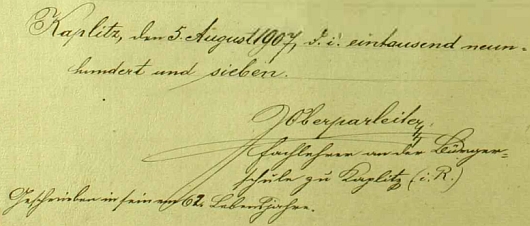 Kaplitz, den 5. August 1907, d. i. eintausend neun-
hundert und sieben.
JOberparleiter,
Fachlehrer an der Bürger-
schule zu Kaplitz (i. R.)
Geschrieben in seinem 62. Lebensjahre.